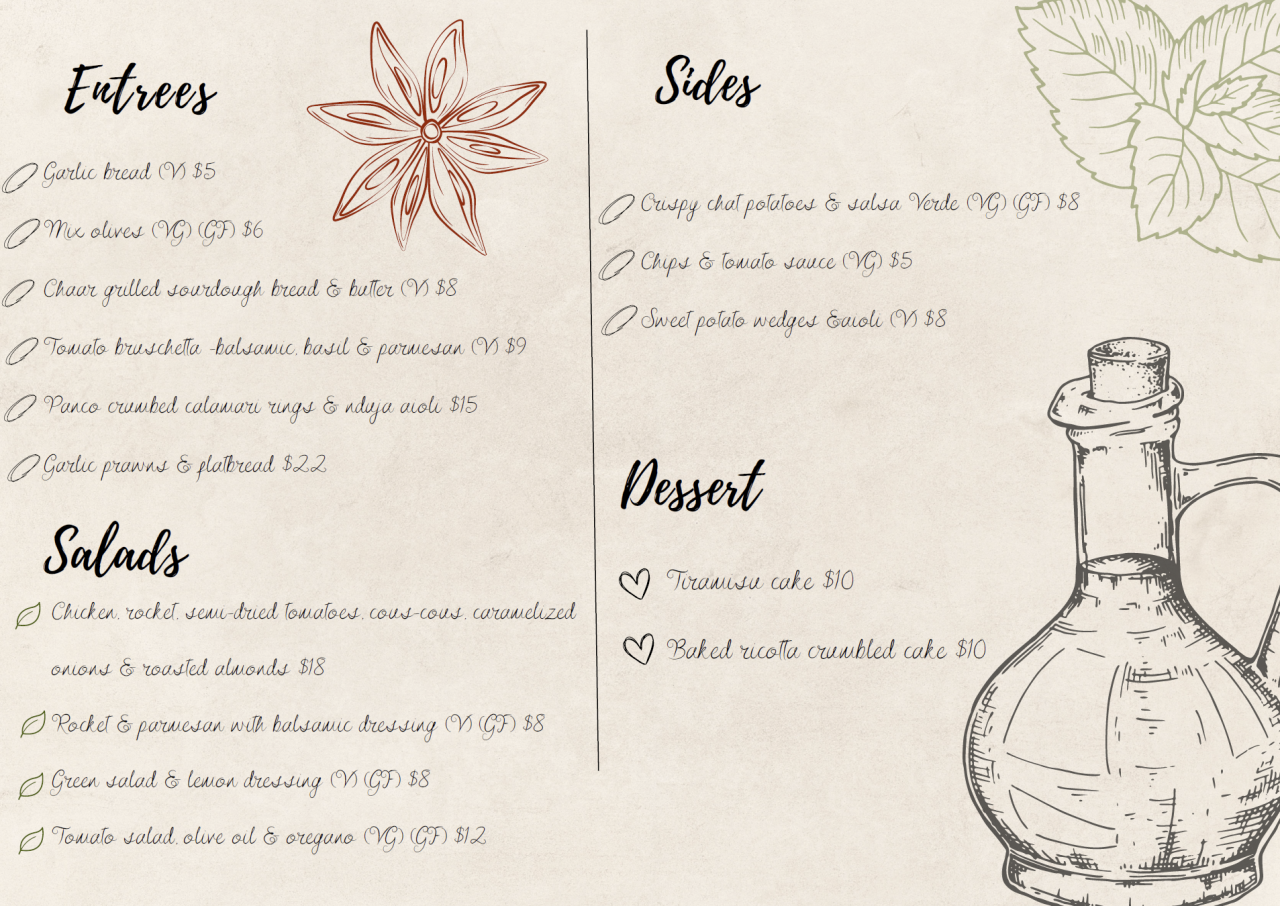 Entrees
Garlic bread (V) $5
Mix olives (VG) (GF) $6
Chaar grilled sourdough bread & butter (V) $8
Tomato bruschetta -balsamic, basil & parmesan (V) $9
Panco crumbed calamari rings & nduja aioli $15
Garlic prawns & flatbread $22
Salads
Chicken, rocket, semi-dried tomatoes, cous-cous, caramelized
onions & roasted almonds $18
Rocket & parmesan with balsamic dressing (V) (GF) $8
Green salad & lemon dressing (V) (GF) $8
Tomato salad, olive oil & oregano (VG) (GF) $12
Sides
Crispy chat potatoes & salsa Verde (VG) (GF) $8
Chips & tomato sauce (VG) $5
Sweet potato wedges &aioli (V) $8
Dessert
Tiramisu cake $10
Baked ricotta crumbled cake $10